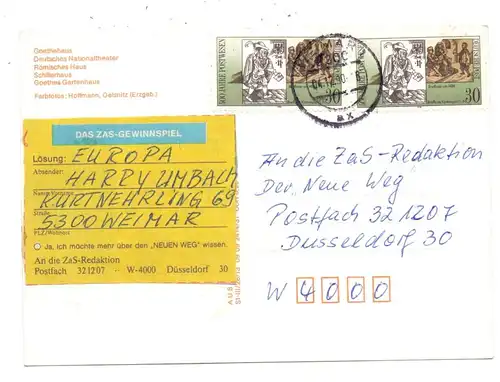 Goethehaus
Deutsches Nationaltheater
Römisches Haus
Schillerhaus
Goethes Gartenhaus
Farbfotos: Hoffmann, Gelbnitz (Erzgeb.)
500 JAHRE POSTWESEN
30
30
DAS ZAS-GEWINNSPIEL
Lösung: EUROPA
Absender: HARRY UMBACH
Name/Vorname
KURT NEHRLING 69
Straße
5300 WEIMAR
PLZ/Wohnort
Ja, ich möchte mehr über den „NEUEN WEG" wissen.
An die ZaS-Redaktion
Postfach 321207 · W-4000 Düsseldorf 30
An die ZaS-Redaktion
Der Neue Weg
Postfach 32 1207
Düsseldorf 30
W 4000